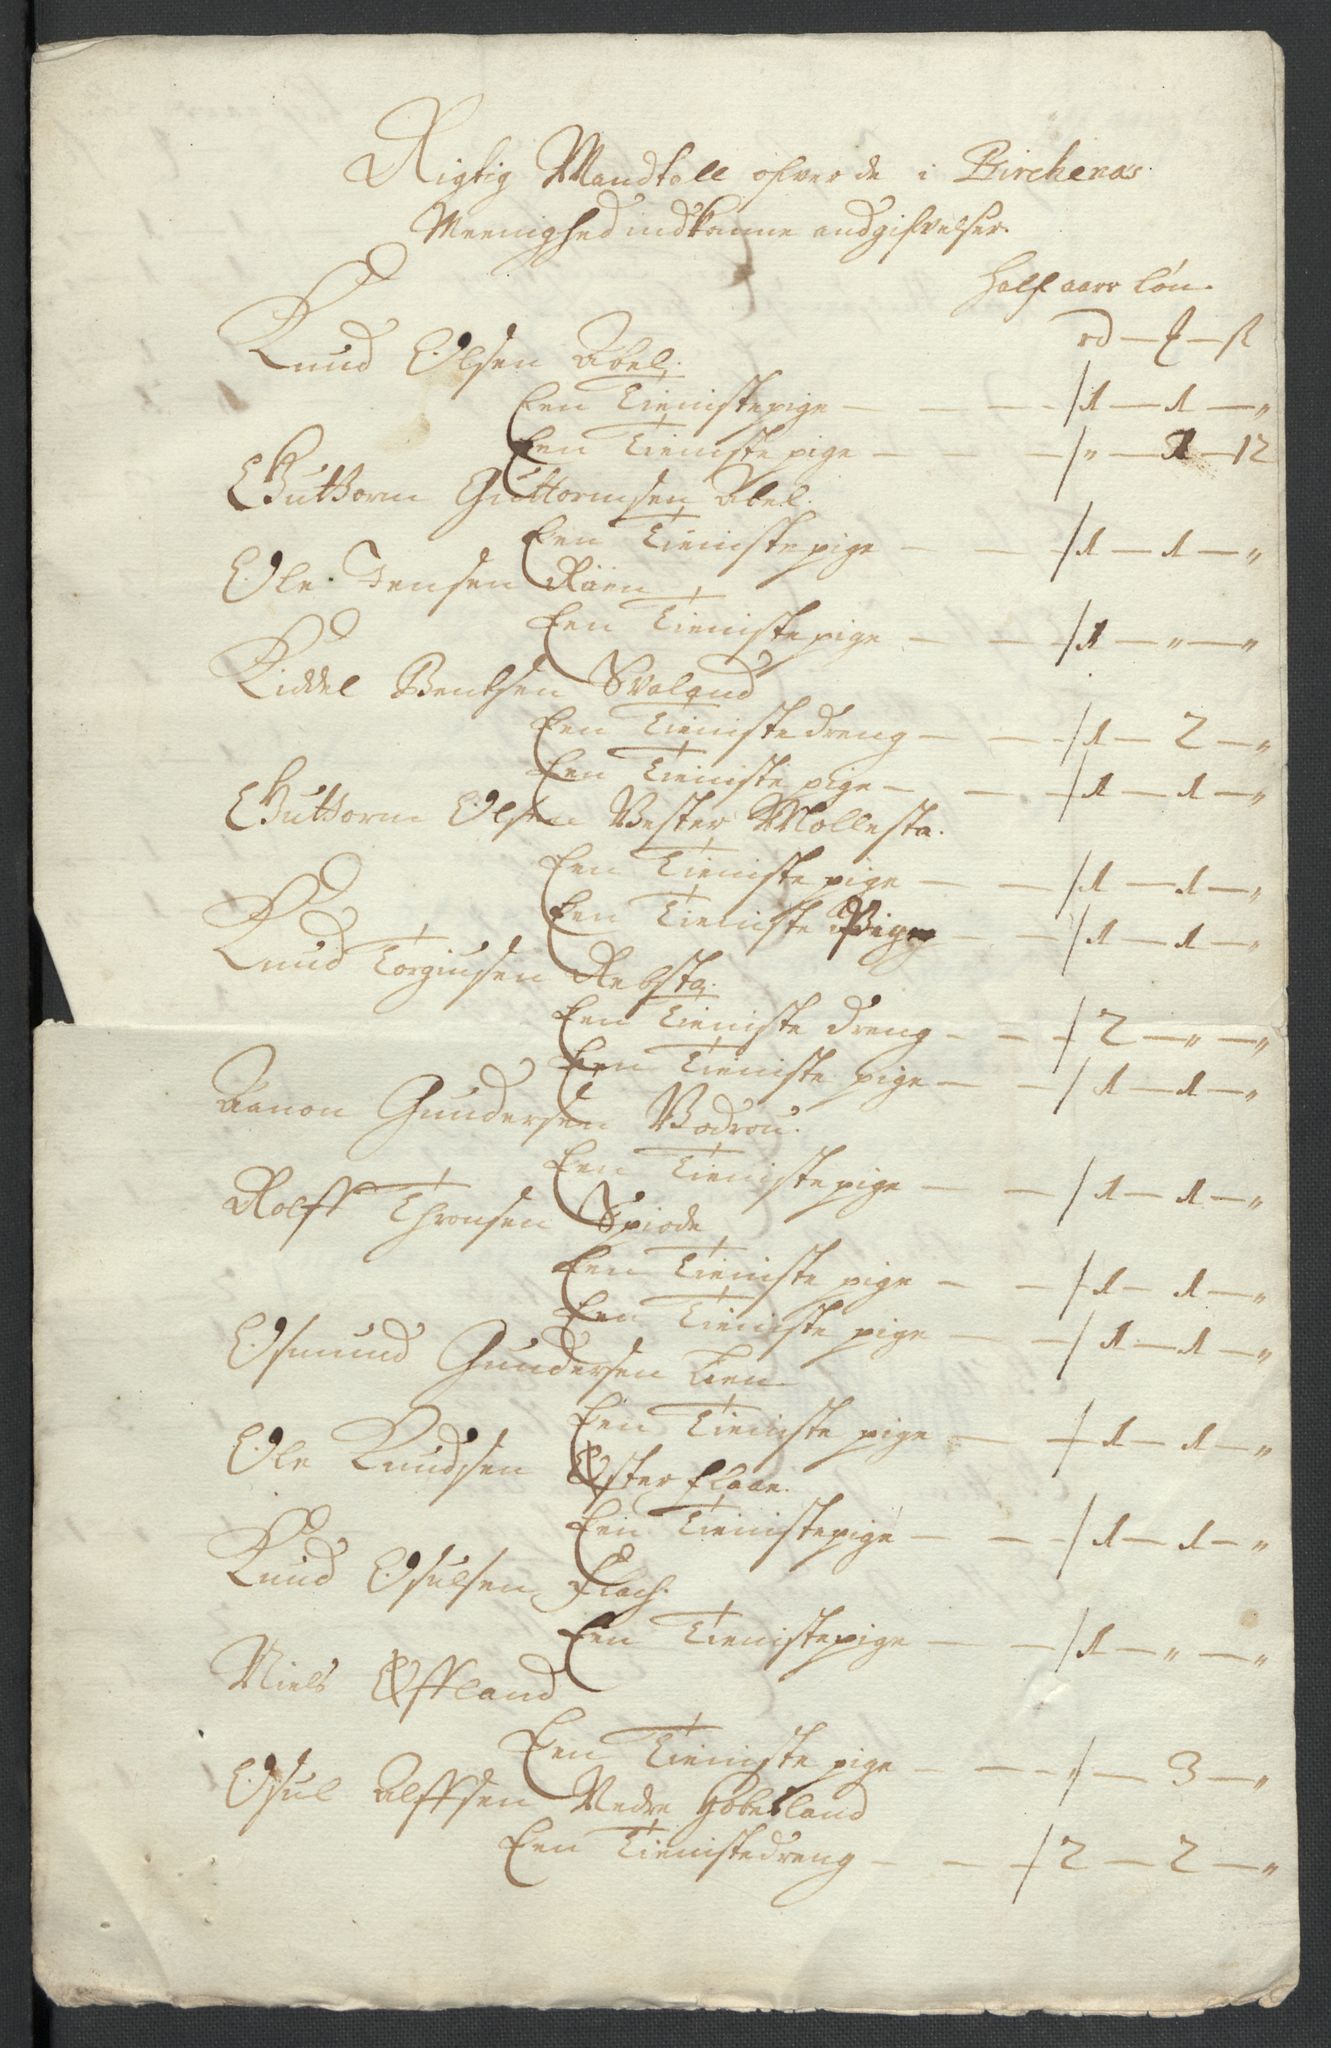 Rigtig Mandtall ofver de i Birchenas
Meenighed indkomne andgifvelser.
Half aars Løn.
rd — ℔ — ß
Knud Olsen Abel.
Een Tienistepige — — — 1 — 1 — „
Een Tieniste pige — — — „ — 1 — 12
Guttorm Guttormsen Abel.
Een Tieniste pige — — 1 — 1 — „
Ole Jensen Røen
Een Tieniste pige — — 1 — „ — „
Kiddel Bentsen Svaland
Een Tienistedreng — — 1 — 2 — „
Een Tieniste pige — — 1 — 1 — „
Guttorm Olsen Vester Mollesta.
Een Tieniste pige — — 1 — 1 — „
Een Tieniste Pige — — 1 — 1 — „
Knud Torgiusen Rebsta.
Een Tieniste dreng — — 2 — „ — „
Een Tieniste pige — — 1 — 1 — „
Aanon Gundersen Bodrou.
Een Tienistepige — — 1 — 1 — „
Rolff Thronsen Spiode
Een Tieniste pige — — 1 — 1 — „
Een Tieniste pige — — 1 — 1 — „
Osmund Gundersen Lien
Een Tieniste pige — — 1 — 1 — „
Ole Knudsen Øster Flaae.
Een Tienistepige — — 1 — 1 — „
Knud Osulsen Flach.
Een Tienistepige — — 1 — „ — „
Niels Øffland
Een Tieniste pige — — „ — 3 — „
Osul Alffsen Nedre Høbesland
Een Tienistedreng — — 2 — 2 — „